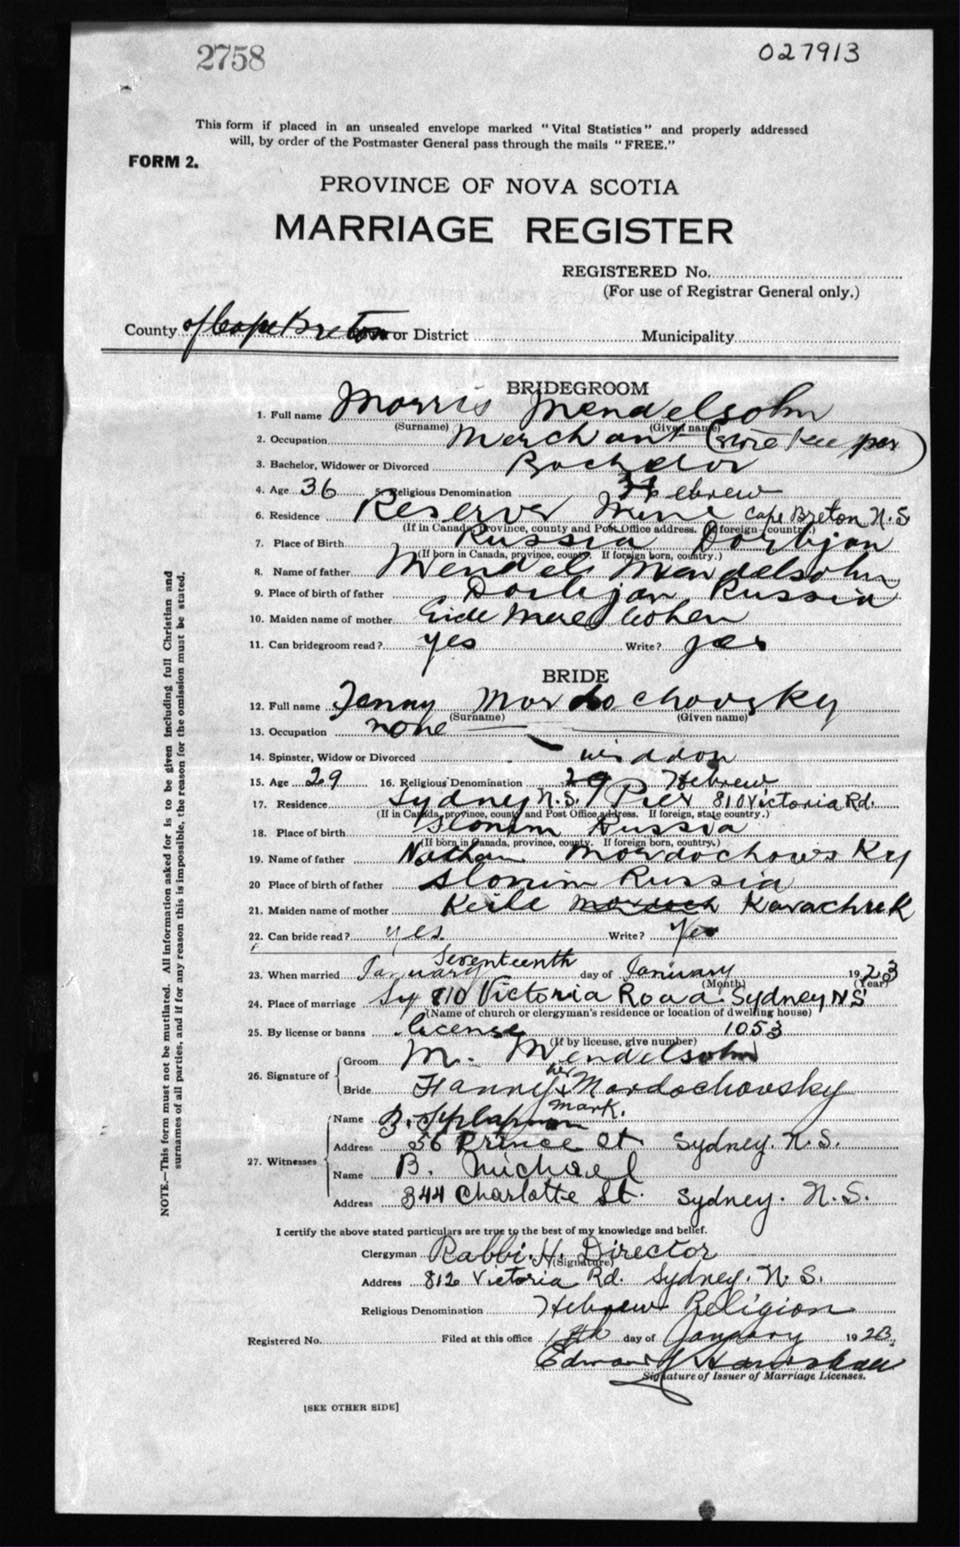 2758
027913
This form if placed in an unsealed envelope marked "Vital Statistics" and properly addressed
will, by order of the Postmaster General pass through the mails "FREE."
FORM 2.
PROVINCE OF NOVA SCOTIA
MARRIAGE REGISTER
REGISTERED No.
(For use of Registrar General only.)
County of Cape Breton or District Municipality
BRIDEGROOM
1. Full name Morris Mendelsohn
(Surname) (Given name)
2. Occupation Merchant (store keeper)
3. Bachelor, Widower or Divorced Bachelor
4. Age 36 5. Religious Denomination Hebrew
6. Residence Reserve Mine Cape Breton N.S
(If in Canada, province, county and Post Office address. If foreign country.)
7. Place of Birth Russia Dorbjan
(If born in Canada, province, county. If foreign born, country.)
8. Name of father Mendel Mendelsohn
9. Place of birth of father Dorbjan Russia
10. Maiden name of mother Cohen
11. Can bridegroom read? yes Write? yes
BRIDE
12. Full name Fanny Mordochovsky
(Surname) (Given name)
13. Occupation none
14. Spinster, Widow or Divorced widdow
15. Age 29 16. Religious Denomination 29 Hebrew
17. Residence Sydney N.S. Pier 810 Victoria Rd.
(If in Canada, province, county and Post Office address. If foreign, state country.)
18. Place of birth Slonim Russia
(If born in Canada, province, county. If foreign born, country.)
19. Name of father Nathan Mordochowsky
20 Place of birth of father Slonim Russia
21. Maiden name of mother Keile Mordoch Kavachuk
22. Can bride read? yes Write? Yes
23. When married January Seventeenth day of January 1923
(Month) (Year)
24. Place of marriage Sy 810 Victoria Road Sydney N S
(Name of church or clergyman's residence or location of dwelling house)
25. By license or banns license 1053
(If by license, give number)
26. Signature of Groom M. Mendelsohn
Bride Fanny her x mark. Mordochovsky
27. Witnesses Name
Address 56 Prince St Sydney. N.S.
Name B. Michael
Address 344 Charlotte St. Sydney. N.S.
I certify the above stated particulars are true to the best of my knowledge and belief.
Clergyman Rabbi. H. Director
(Signature)
Address 812 Victoria Rd. Sydney. N.S.
Religious Denomination Hebrew Religion
Registered No. Filed at this office day of January 1923.
Edward
Signature of Issuer of Marriage Licenses.
[SEE OTHER SIDE]
NOTE.—This form must not be mutilated. All information asked for is to be given including full Christian and
surnames of all parties, and if for any reason this is impossible, the reason for the omission must be stated.